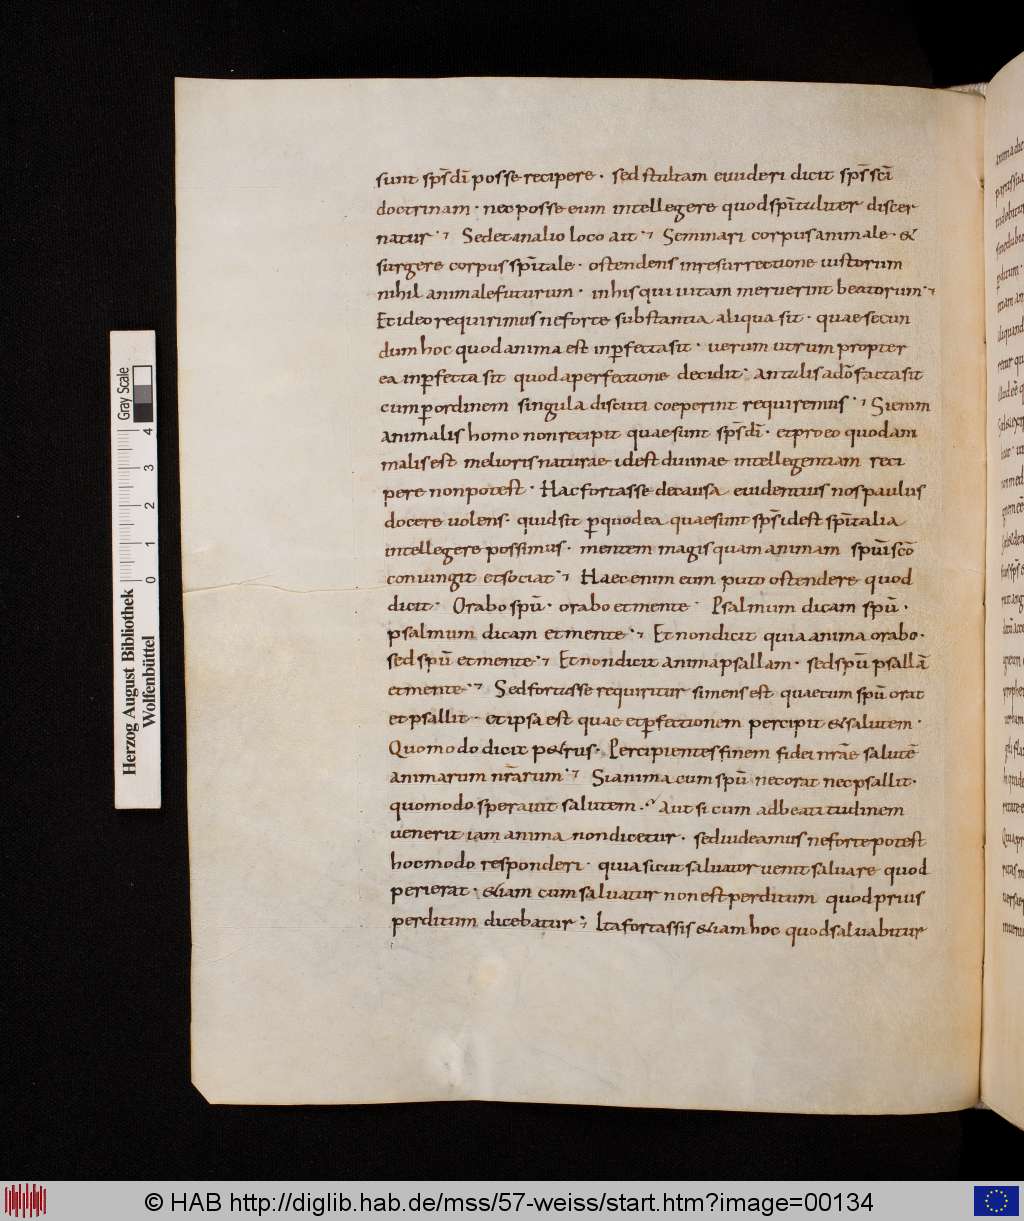 sunt sp̄s dī posse recipere · sed stultam euideri dicit sp̄s sc̄i
doctrinam · nec posse eum intellegere quod sp̄italiter discer
natur · Sed et in alio loco ait · Seminari corpus animale · &
surgere corpus sp̄itale · ostendens in resurrectione iustorum
nihil animale futurum · in his qui uitam meruerint beatorum ·
Et ideo requirimus ne forte substantia aliqua sit · quae secun
dum hoc quod anima est inꝑfecta sit · uerum utrum propter
ea inꝑfecta sit quod a perfectione decidit · an talis a dō facta sit
cum ꝑ ordinem singula discuti coeperint requiremus · Si enim
animalis homo non recipit quae sunt sp̄s dī · et pro eo quod ani
malis est melioris naturae idest diuinae intellegentiam reci
pere non potest · Hac fortasse de causa euidentius nos paulus
docere uolens · quid sit ꝑ quod ea quae sunt sp̄s idest sp̄italia
intellegere possimus · mentem magis quam animam spūi scō
coniungit et sociat · Haec enim eum puto ostendere quod
dicit · Orabo spū · orabo et mente · Psalmum dicam spū ·
psalmum dicam et mente · Et non dicit quia anima orabo ·
sed spū et mente · Et non dicit anima psallam · sed spū psallā
et mente · Sed fortasse requiritur si mens est quae cum spū orat
et psallit · et ipsa est quae et ꝑfectionem percipit & salutem ·
Quomodo dicit p&rus · Percipientes finem fidei nr̄ae salutē
animarum nr̄arum · Si anima cum spū nec orat nec psallit ·
quomodo sperauit salutem · Aut si cum ad beatitudinem
uenerit iam anima non dicetur · sed uideamus ne forte potest
hoc modo responderi · quia sicut saluator uenit saluare quod
perierat · &iam cum saluatur non est perditum quod prius
perditum dicebatur · Ita fortassis &iam hoc quod saluabitur
Gray Scale
4
3
2
1
0
Herzog August Bibliothek
Wolfenbüttel
© HAB http://diglib.hab.de/mss/57-weiss/start.htm?image=00134